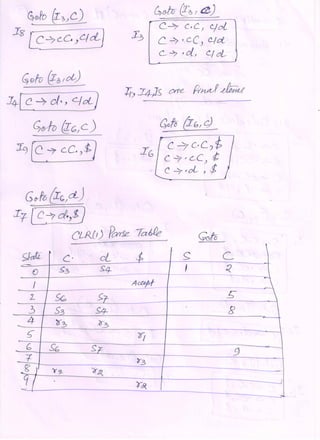 Goto (I3, C)
I8 C → cC., c/d
Goto (I3, c)
I3 C → c.C, c/d
C → .cC, c/d
C → .d, c/d
Goto (I3, d)
I4 C → d., c/d
I4, I5 is one final items
Goto (I6, C)
I9 C → cC., $
Goto (I6, c)
I6 C → c.C, $
C → .cC, $
C → .d, $
Goto (I6, d)
I7 C → d., $
CLR(1) Parse Table Goto
State c d $ S C
0 S3 S4 1 2
1 Accept
2 S6 S7 5
3 S3 S4 8
4 r3 r3
5 r1
6 S6 S7 9
7 r3
8 r3 r2
9 r2